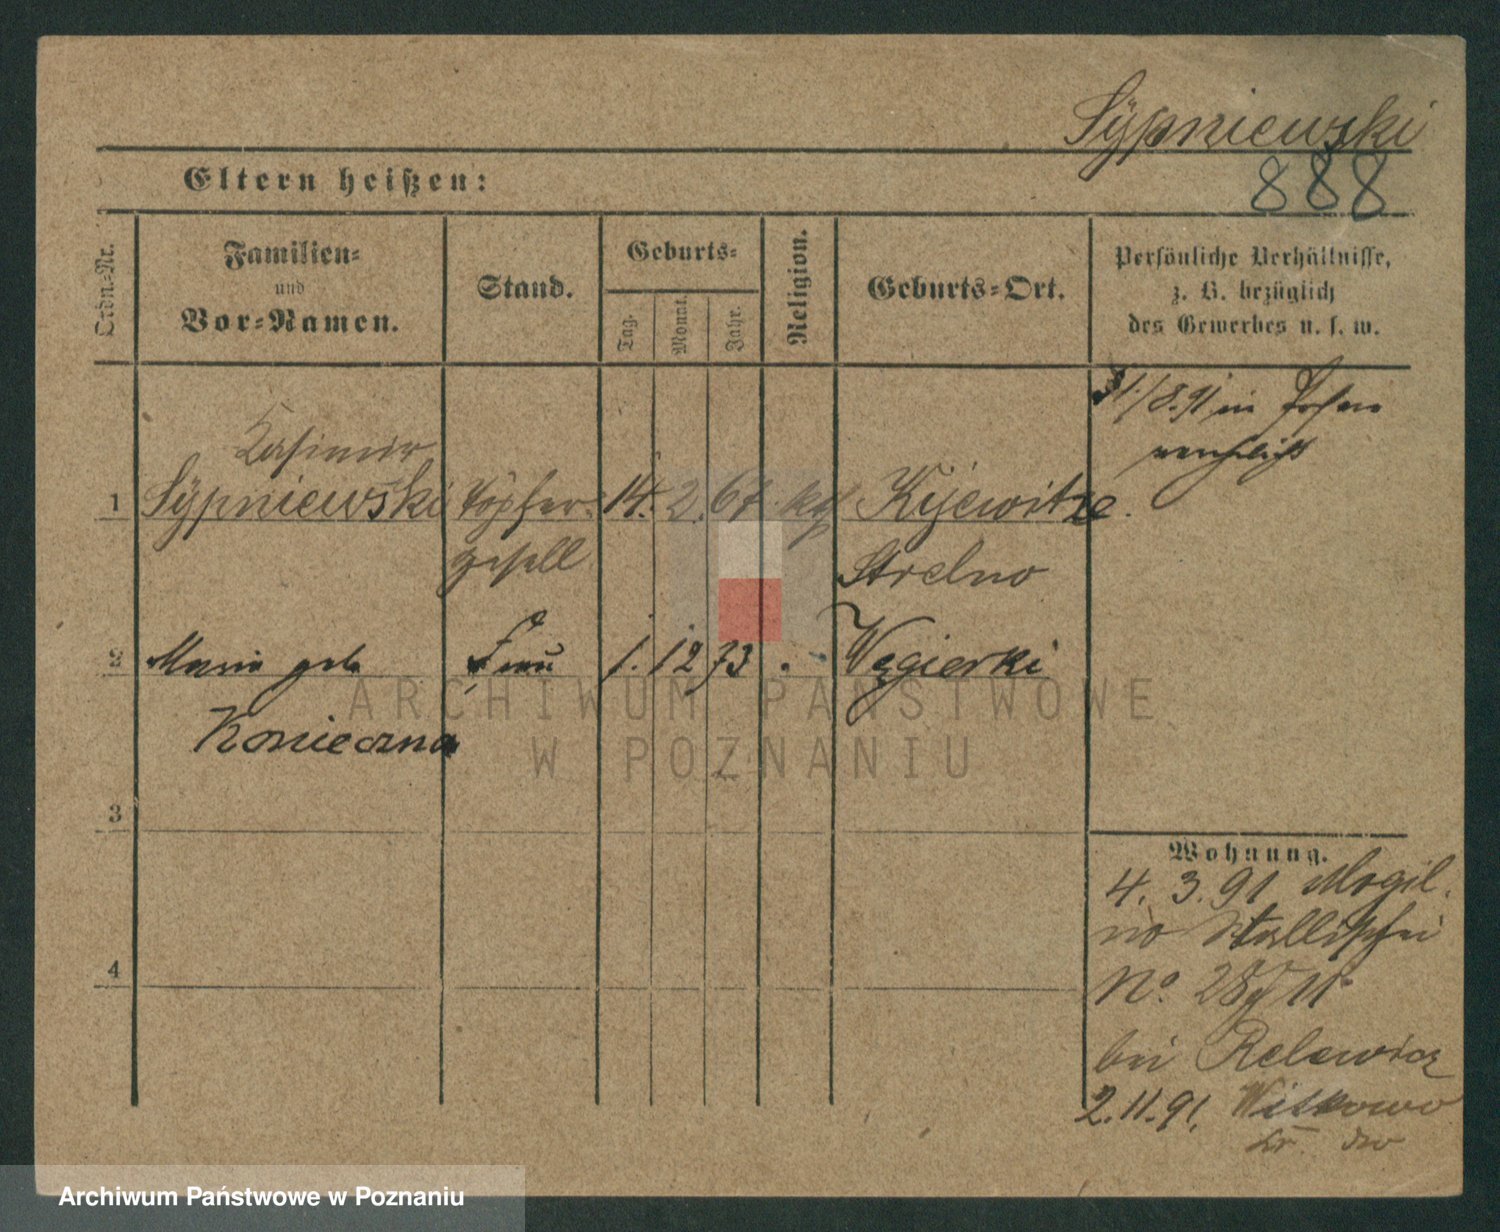 Sÿpniewski
Eltern heißen:
888
Ordn.-Nr.
Familien-
und
Vor-Namen.
Stand.
Geburts-
Tag.
Monat.
Jahr.
Religion.
Geburts-Ort.
Persönliche Verhältnisse,
z. B. bezüglich
des Gewerbes u. s. w.
31./8.91 in Posen
verehelicht
Kasimir
1 Sÿpniewski Töpfer- 14. 2. 67. kth Kijewitze.
gesell Strelno
2 Maria geb. Frau 1. 12 73 Węgierki
Konieczna
3
4
Wohnung.
4. 3. 91 Mogil.
no
No. 28
bei Relewicz
2.11.91. Witkowo
ARCHIWUM PAŃSTWOWE
W POZNANIU
Archiwum Państwowe w Poznaniu